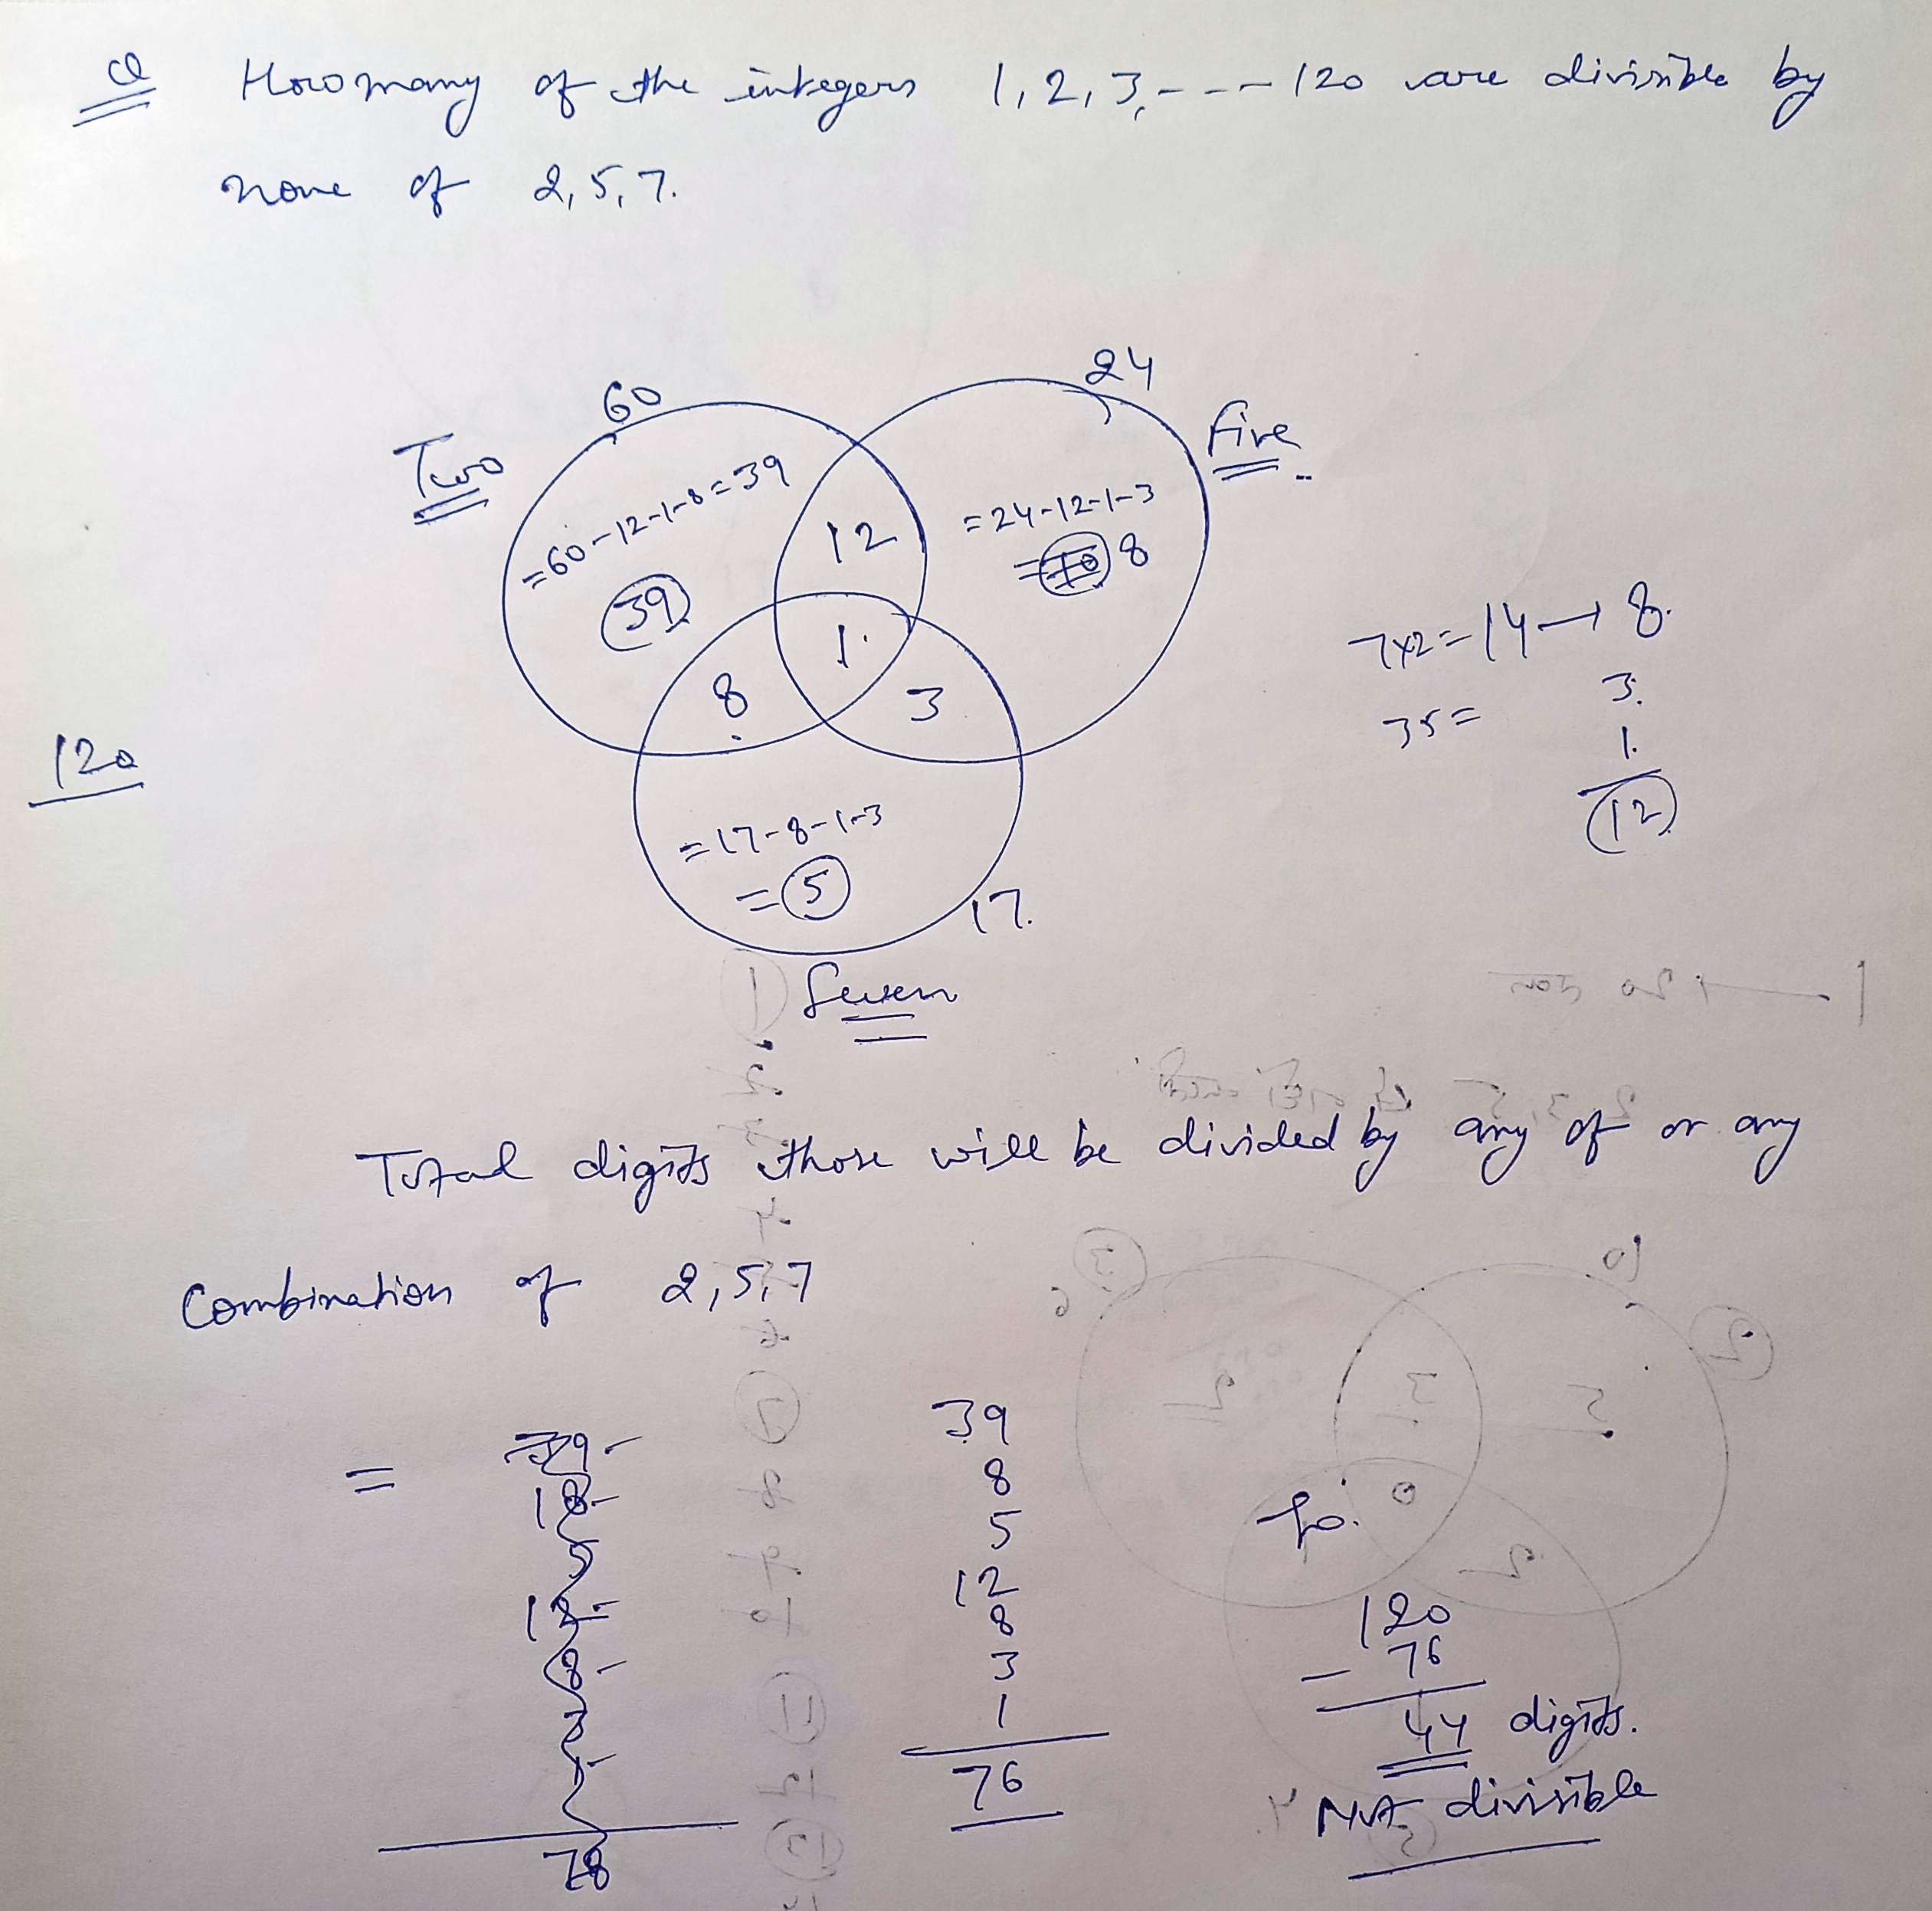 Q How many of the integers 1, 2, 3, --- 120 are divisible by
none of 2, 5, 7.
60
24
Two
Five
=60-12-1-8=39
39
12
=24-12-1-3
= 8
1.
8
3
7x2=14→8.
35= 3.
1.
12
120
=17-8-1-3
=5
17.
Seven
Total digits those will be divided by any of or any
Combination of 2, 5, 7
=
78
39
8
5
12
8
3
1
76
120
- 76
44 digits.
Not divisible